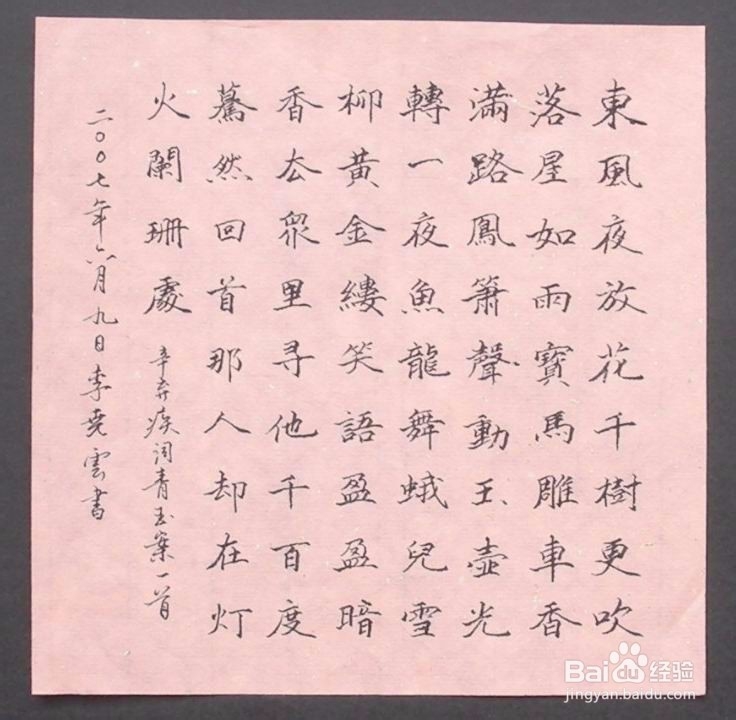 東風夜放花千樹更吹
落星如雨寶馬雕車香
滿路鳳簫聲動玉壺光
轉一夜魚龍舞蛾兒雪
柳黃金縷笑語盈盈暗
香厺眾里寻他千百度
驀然回首那人却在灯
火闌珊處
辛弃疾词青玉案一首
二〇〇七年六月九日李堯雲書
Baidu经验
jingyan.baidu.com